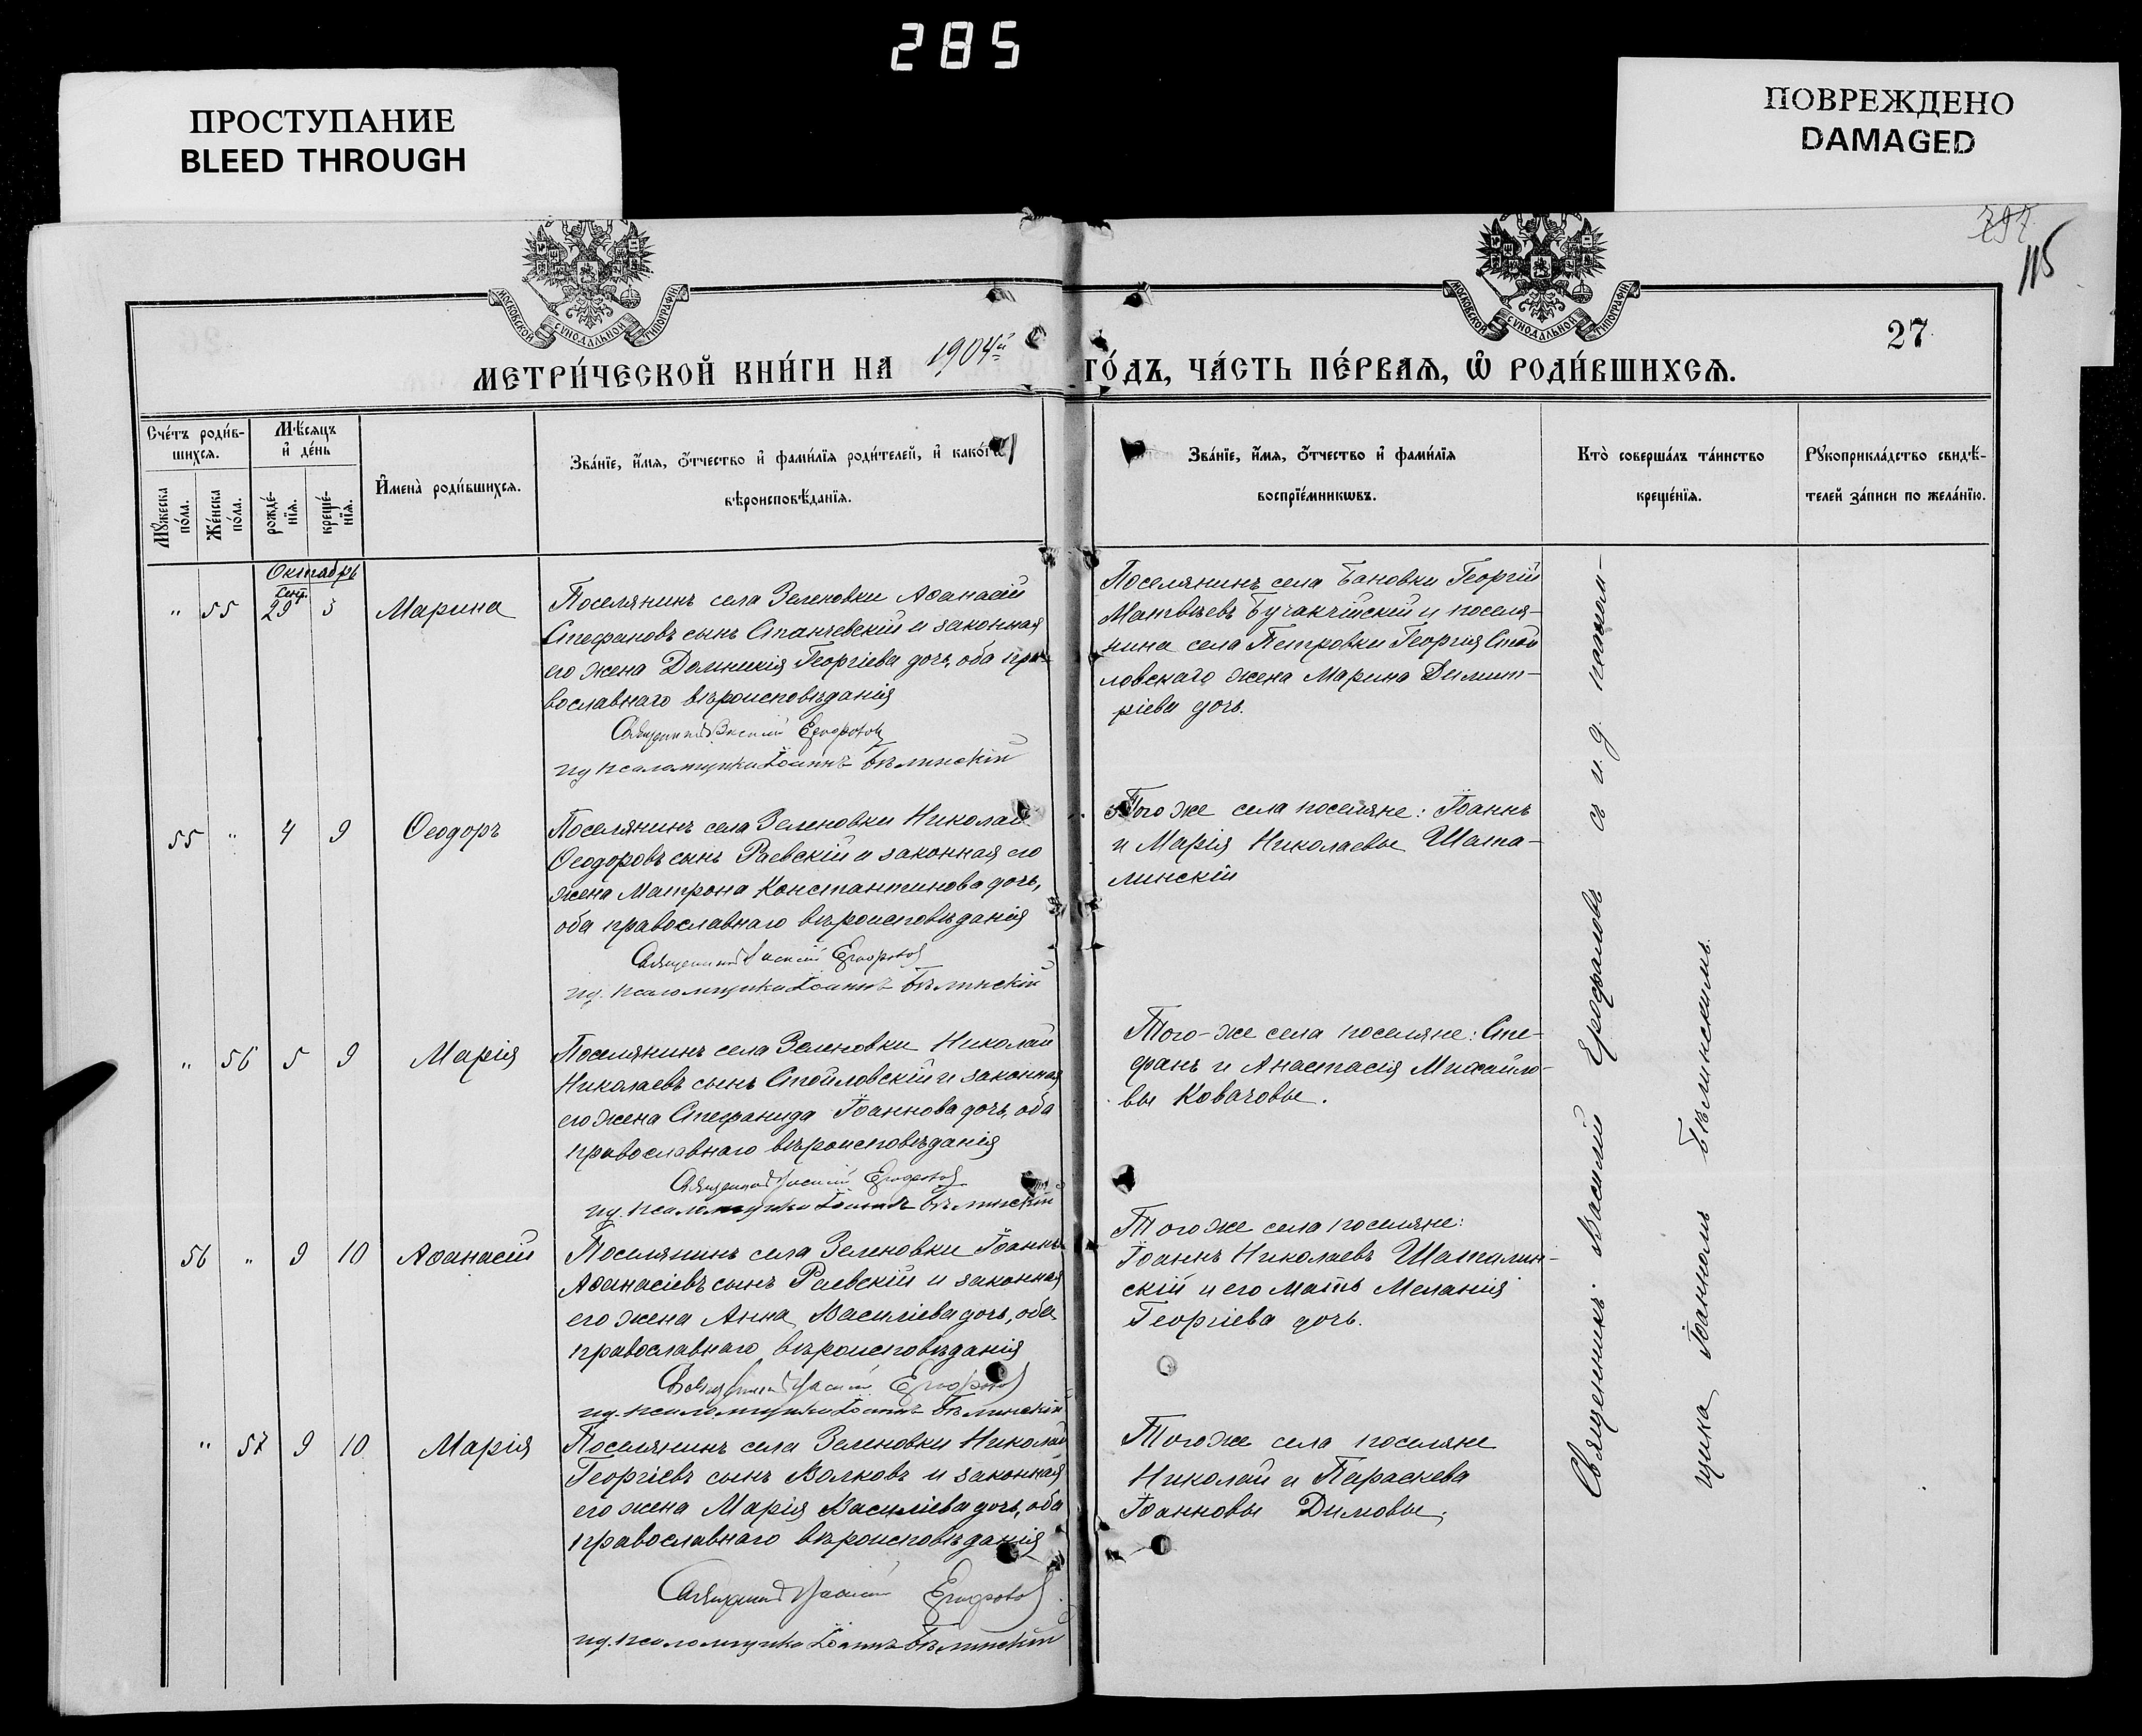 285
ПРОСТУПАНИЕ
BLEED THROUGH
ПОВРЕЖДЕНО
DAMAGED
797
115
МОСКОВСКОЙ СѴНОДАЛЬНОЙ ТИПОГРАФІИ
МОСКОВСКОЙ СѴНОДАЛЬНОЙ ТИПОГРАФІИ
27
МЕТРИ́ЧЕСКОЙ КНИ́ГИ НА 1904й ГО́ДЪ, ЧА́СТЬ ПЕ́РВАЯ, Ѡ҆ РОДИ́ВШИХСЯ.
Сче́тъ роди́в-
шихся.
Мꙋжеска
по́ла.
Же́нска
по́ла.
Мѣ́сяцъ
и҆ де́нь
рожде́-
нїя.
креще́-
нїя.
И҆мена̀ роди́вшихся.
Зва́нїе, и҆́мя, ѻ҆́тчество и҆ фами́лїя роди́телей, и҆ како́гѡ
вѣроисповѣ́данїя.
Зва́нїе, и҆́мя, ѻ҆́тчество и҆ фами́лїя
воспрїе́мникѡвъ.
Кто̀ соверша́лъ та́инство
креще́нїя.
Рꙋкоприкла́дство свидѣ́-
телей за́писи по жела́нїю.
Октябрь
Сент.
" 55 29 5 Марина
Поселянинъ села Зеленовки Аѳанасій
Стефановъ сынъ Станчевскій и законная
его жена Домникія Георгіева дочь, оба пра-
вославнаго вѣроисповѣданія
Священникъ Василій Ерофаловъ
ид псаломщика Іоаннъ Бѣлинскій
Поселянинъ села Бановки Георгій
Матвѣевъ Бучакчійскій и поселя-
нина села Петровки Георгія Стой
ловскаго жена Марина Димит-
ріева дочь.
55 " 4 9 Ѳеодоръ
Поселянинъ села Зеленовки Николай
Ѳеодоровъ сынъ Раевскій и законная его
жена Матрона Константинова дочь,
оба православнаго вѣроисповѣданія
Священникъ Василій Ерофаловъ
ид. псаломщика Іоаннъ Бѣлинскій
Того же села поселяне: Іоаннъ
и Марія Николаевы Шата-
линскій
" 56 5 9 Марія
Поселянинъ села Зеленовки Николай
Николаевъ сынъ Стойловскій и законная
его жена Стефанида Іоаннова дочь, оба
православнаго вѣроисповѣданія
Священникъ Василій Ерофаловъ
ид. псаломщика Іоаннъ Бѣлинскій
Того-же села поселяне: Сте-
фанъ и Анастасія Михайло-
вы Ковачовы.
56 " 9 10 Аѳанасій
Поселянинъ села Зеленовки Іоаннъ
Аѳанасіевъ сынъ Раевскій и законная
его жена Анна Василіева дочь, оба
православнаго вѣроисповѣданія
Священникъ Василій Ерофаловъ
ид. псаломщика Іоаннъ Бѣлинскій
Того же села поселяне:
Іоаннъ Николаевъ Шаталин-
скій и его мать Меланія
Георгіева дочь.
" 57 9 10 Марія
Поселянинъ села Зеленовки Николай
Георгіевъ сынъ Волковъ и законная
его жена Марія Василіева дочь, оба
православнаго вѣроисповѣданія
Священникъ Василій Ерофаловъ
ид. псаломщика Іоаннъ Бѣлинскій
Того же села поселяне
Николай и Параскева
Іоанновы Димовы.
Священникъ Василій Ерофаловъ съ и. д. псалом-
щика Іоанномъ Бѣлинскимъ.